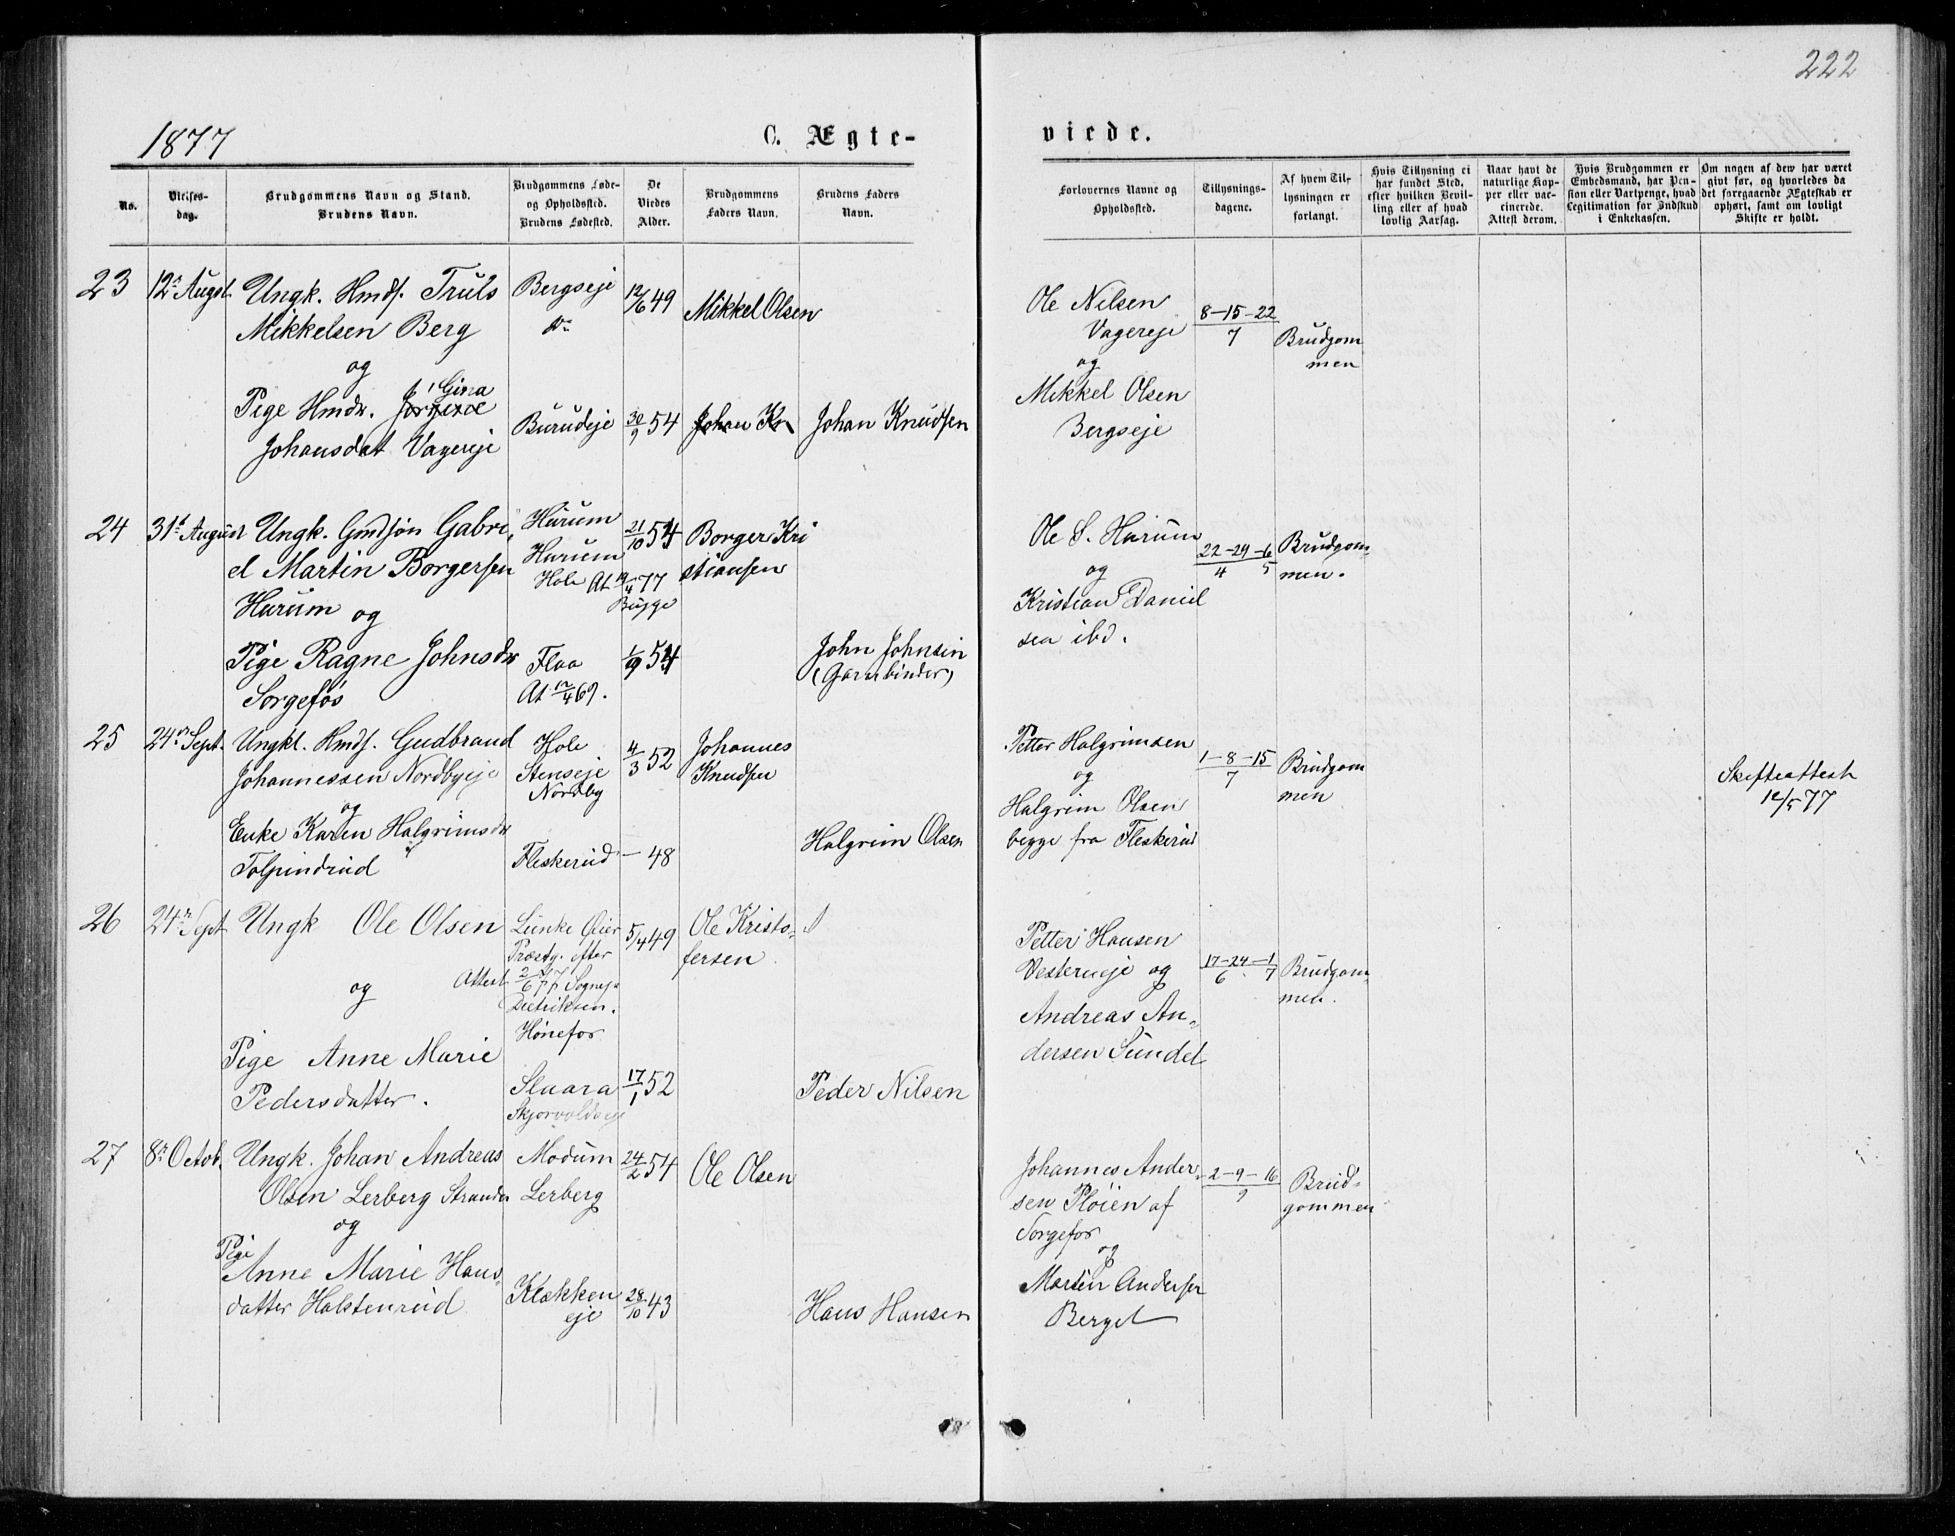 222
1877
C. Ægte-
viede.
No.
Vielses-
dag.
Brudgommens Navn og Stand.
Brudens Navn.
Brudgommens Føde-
og Opholdssted.
Brudens Fødested.
De
Viedes
Alder.
Brudgommens
Faders Navn.
Brudens Faders
Navn.
Forlovernes Navne og
Opholdssted.
Tillysnings-
dagene.
Af hvem Til-
lysningen er
forlangt.
Hvis Tillysning ei
har fundet Sted,
efter hvilken Bevil-
ling eller af hvad
lovlig Aarsag.
Naar havt de
naturlige Kop-
per eller vac-
cinerede.
Attest derom.
Hvis Brudgommen er
Embedsmand, har Pen-
sion eller Vartpenge, hvad
Legitimation for Indskud
i Enkekassen.
Om nogen af dem har været
gift før, og hvorledes da
det foregaaende Ægteskab er
ophørt, samt om lovligt
Skifte er holdt.
23 12te Augst. Ungk. Hmds. Truls
Mikkelsen Berg
og
Pige Hmdr. Gina
Johansdat Vagereje
Bergseje
do
Burudeje
12/6 49
30/9 54
Mikkel Olsen
Johan Kn
Johan Knudsen
Ole Nilsen
Vagereje
og
Mikkel Olsen
Bergseje
8-15-22
7
Brudgom
men
24 31te August Ungk. Gmdsøn Gabri
el Martin Borgersen
Harum og
Pige Ragne Johnsdr
Sorgefos
Harum
Harum
Hole At 19/4 77
Bugge
Flaa
At 12/4 69.
21/10 54
1/9 54
Borger Kri
stiansen
John Johnsen
(Garnbinder)
Ole S. Harum
og
Kristian Daniel
sen ibd.
22-29-6
4 5
Brudgom-
men.
25 24de Sept. Ungkl. Hmds. Gudbrand
Johannessen Nordbyeje
og
Enke Karen Halgrimsdr
Tolpindrud
Hole
Stenseje
Nordby
Fleskerud
4/3 52
- 48
Johannes
Knudsen
Halgrim Olsen
Petter Halgrimsen
og
Halgrim Olsen
begge fra Fleskerud
1-8-15
7
Brudgom
men
Skifteattest
12/5 77
26 24de Sept Ungk Ole Olsen
og
Pige Anne Marie
Pedersdatter.
Lunke Øier
Præstg. efter
Attest 2/6 77 Sognep.
Dietriksen.
Hønefos
Slaara
5/4 49
17/1 52
Ole Kristo-
fersen
Peder Nilsen
Petter Hansen
Vesterneje og
Andreas An-
dersen Sundet
17-24-1
6 7
Brudgom-
men.
27 8de Octob. Ungk. Johan Andreas
Olsen Lerberg Stranden
og
Pige
Anne Marie Hans-
datter Halstenrud
Modum
Lerberg
Klækken
eje
24/2 54
28/10 43
Ole Olsen
Hans Hansen
Johannes Ander-
sen Pløien af
Sorgefos
og
Martin Andersen
Berget
2-9-16
9
Brud-
gommen